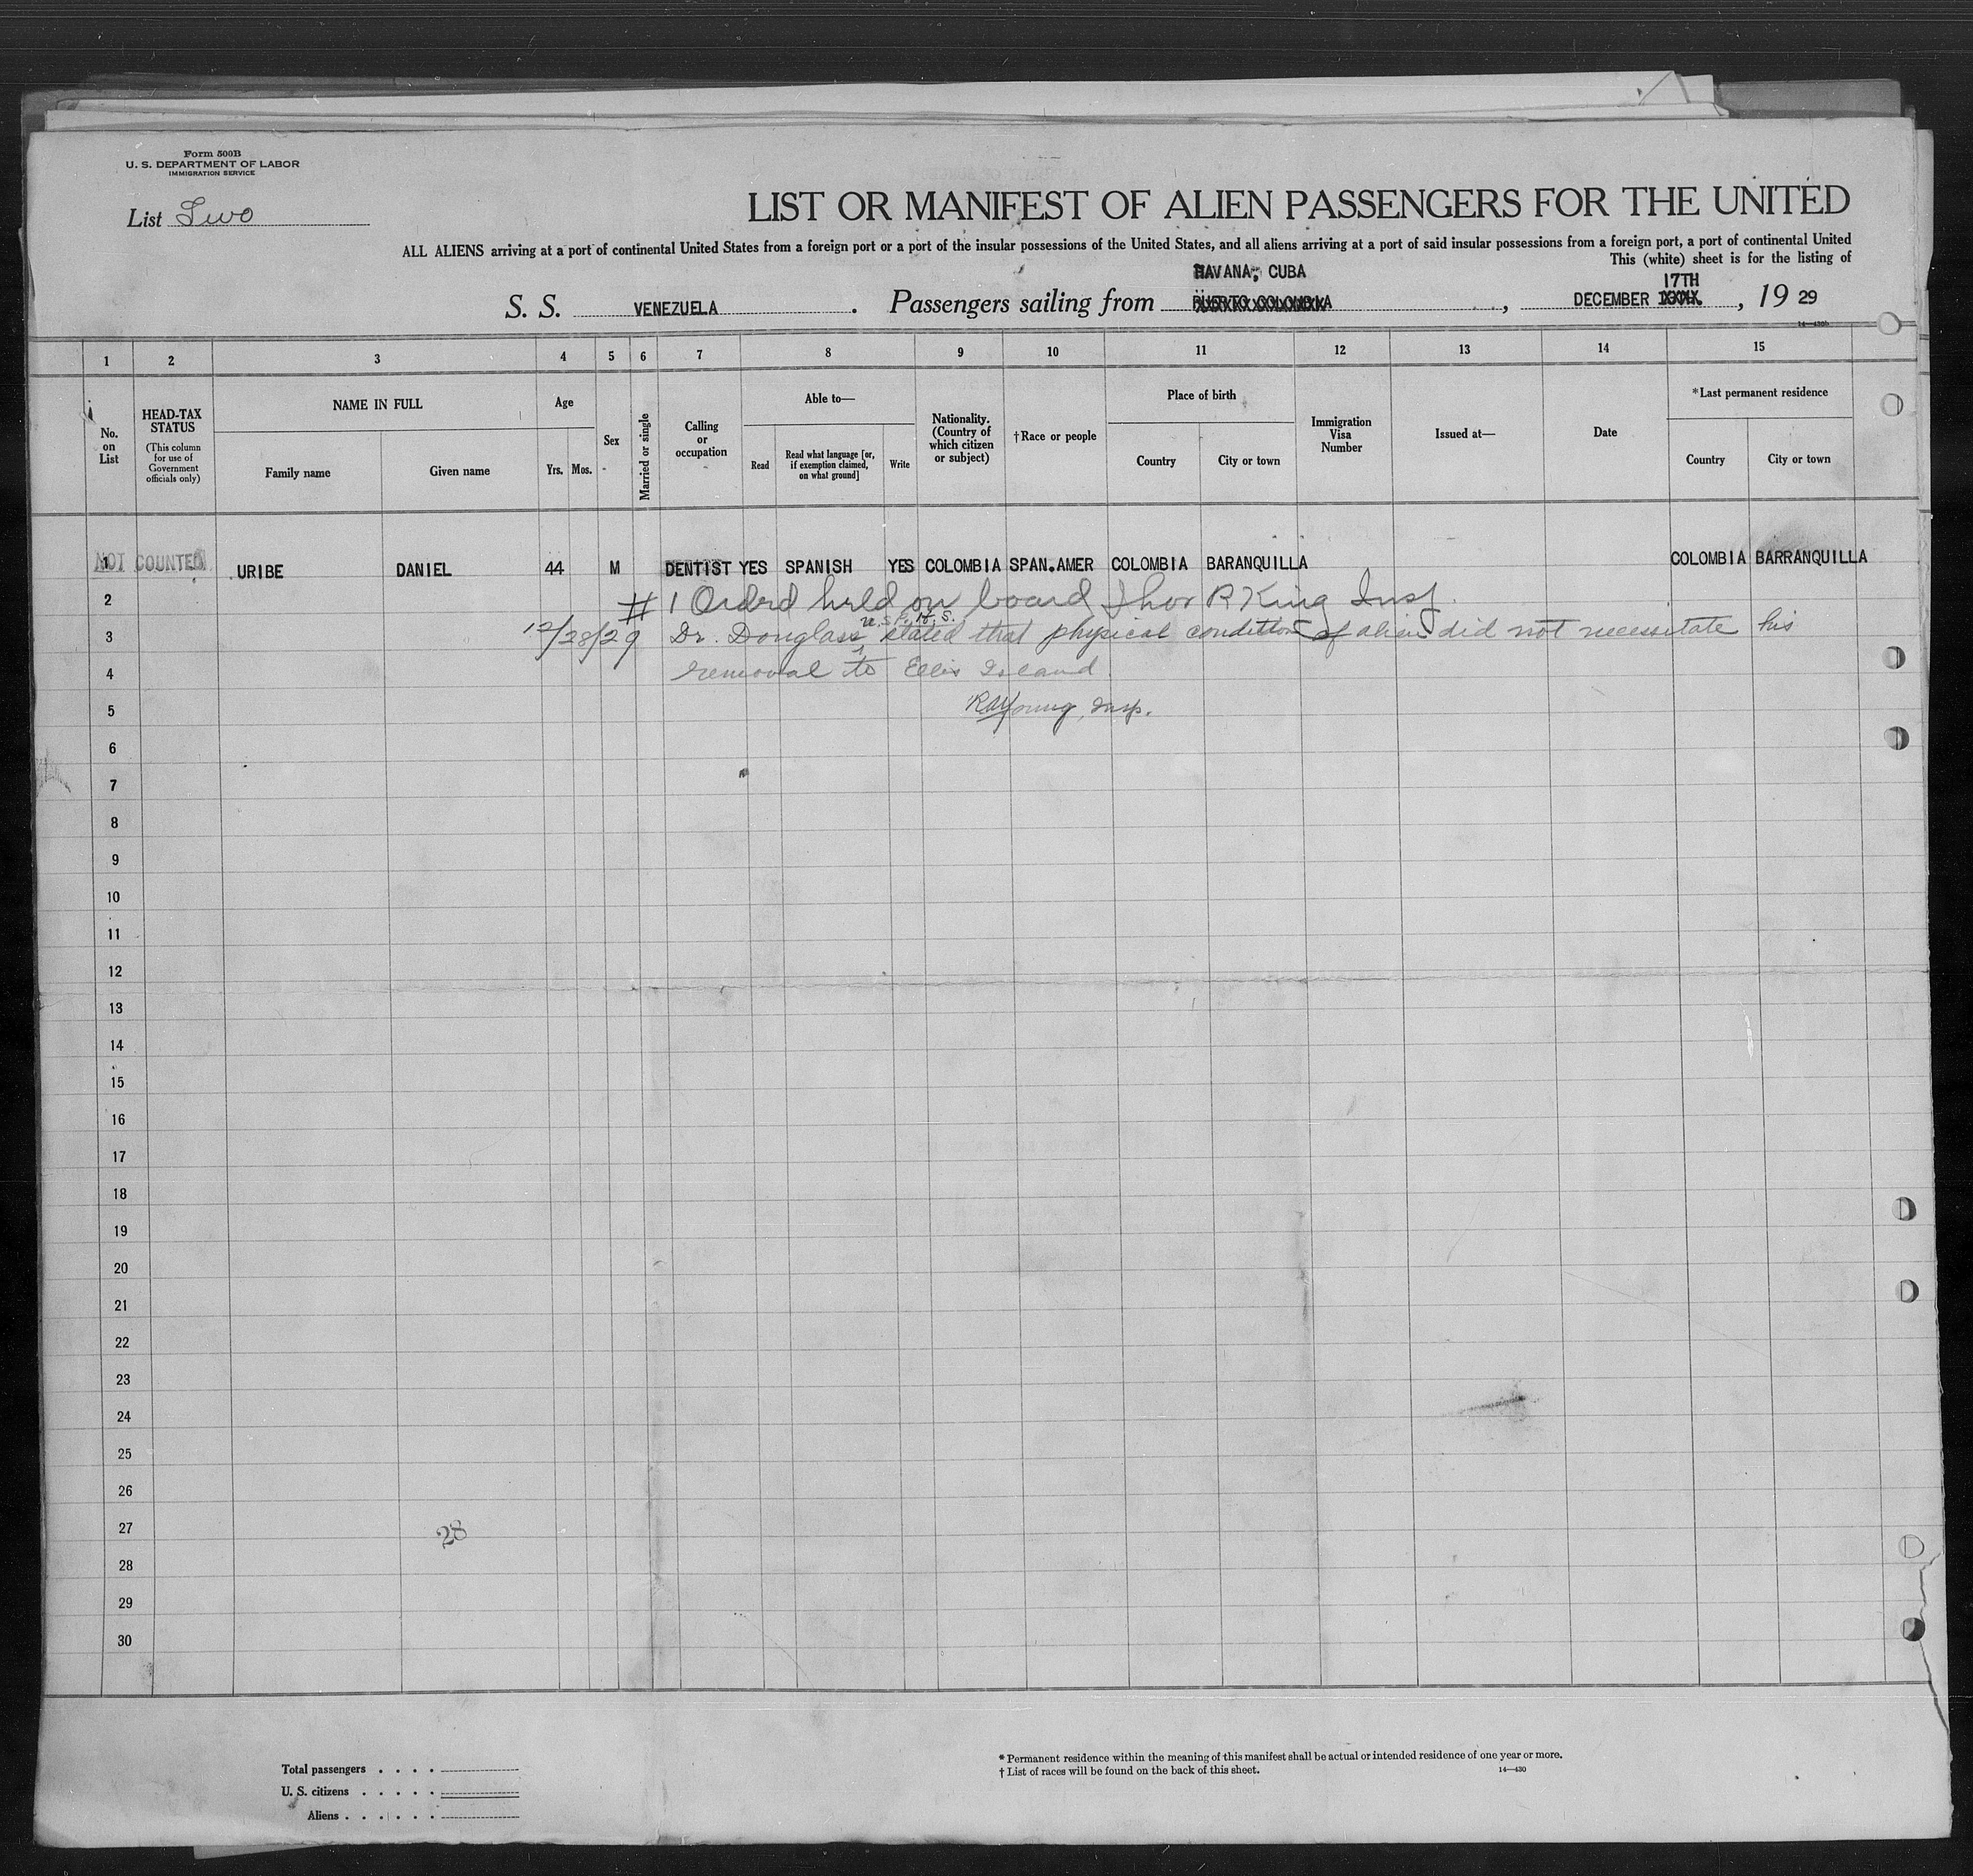 Form 500B
U. S. DEPARTMENT OF LABOR
IMMIGRATION SERVICE
List Two
LIST OR MANIFEST OF ALIEN PASSENGERS FOR THE UNITED
ALL ALIENS arriving at a port of continental United States from a foreign port or a port of the insular possessions of the United States, and all aliens arriving at a port of said insular possessions from a foreign port, a port of continental United
This (white) sheet is for the listing of
HAVANA, CUBA
17TH
S. S. VENEZUELA . Passengers sailing from PUERTO COLOMBIA , DECEMBER , 19 29
14—430b
1 2 3 4 5 6 7 8 9 10 11 12 13 14 15
No. on List
HEAD-TAX STATUS
(This column for use of Government officials only)
NAME IN FULL
Family name
Given name
Age
Yrs. Mos.
Sex
Married or single
Calling or occupation
Able to—
Read
Read what language [or, if exemption claimed, on what ground]
Write
Nationality. (Country of which citizen or subject)
†Race or people
Place of birth
Country
City or town
Immigration Visa Number
Issued at—
Date
*Last permanent residence
Country
City or town
1 NOT COUNTED URIBE DANIEL 44 M DENTIST YES SPANISH YES COLOMBIA SPAN.AMER COLOMBIA BARANQUILLA COLOMBIA BARRANQUILLA
2 # 1 Ordered held on board Thos R King Insp.
U.S.P.H.S.
3 12/28/29 Dr. Douglass stated that physical condition of alien did not necessitate his
4 removal to Ellis Island.
5 RAYoung, Insp.
6
7
8
9
10
11
12
13
14
15
16
17
18
19
20
21
22
23
24
25
26
27
28
28
29
30
Total passengers . . . .
U. S. citizens . . . . .
Aliens . . . . . .
* Permanent residence within the meaning of this manifest shall be actual or intended residence of one year or more.
† List of races will be found on the back of this sheet.
14—430